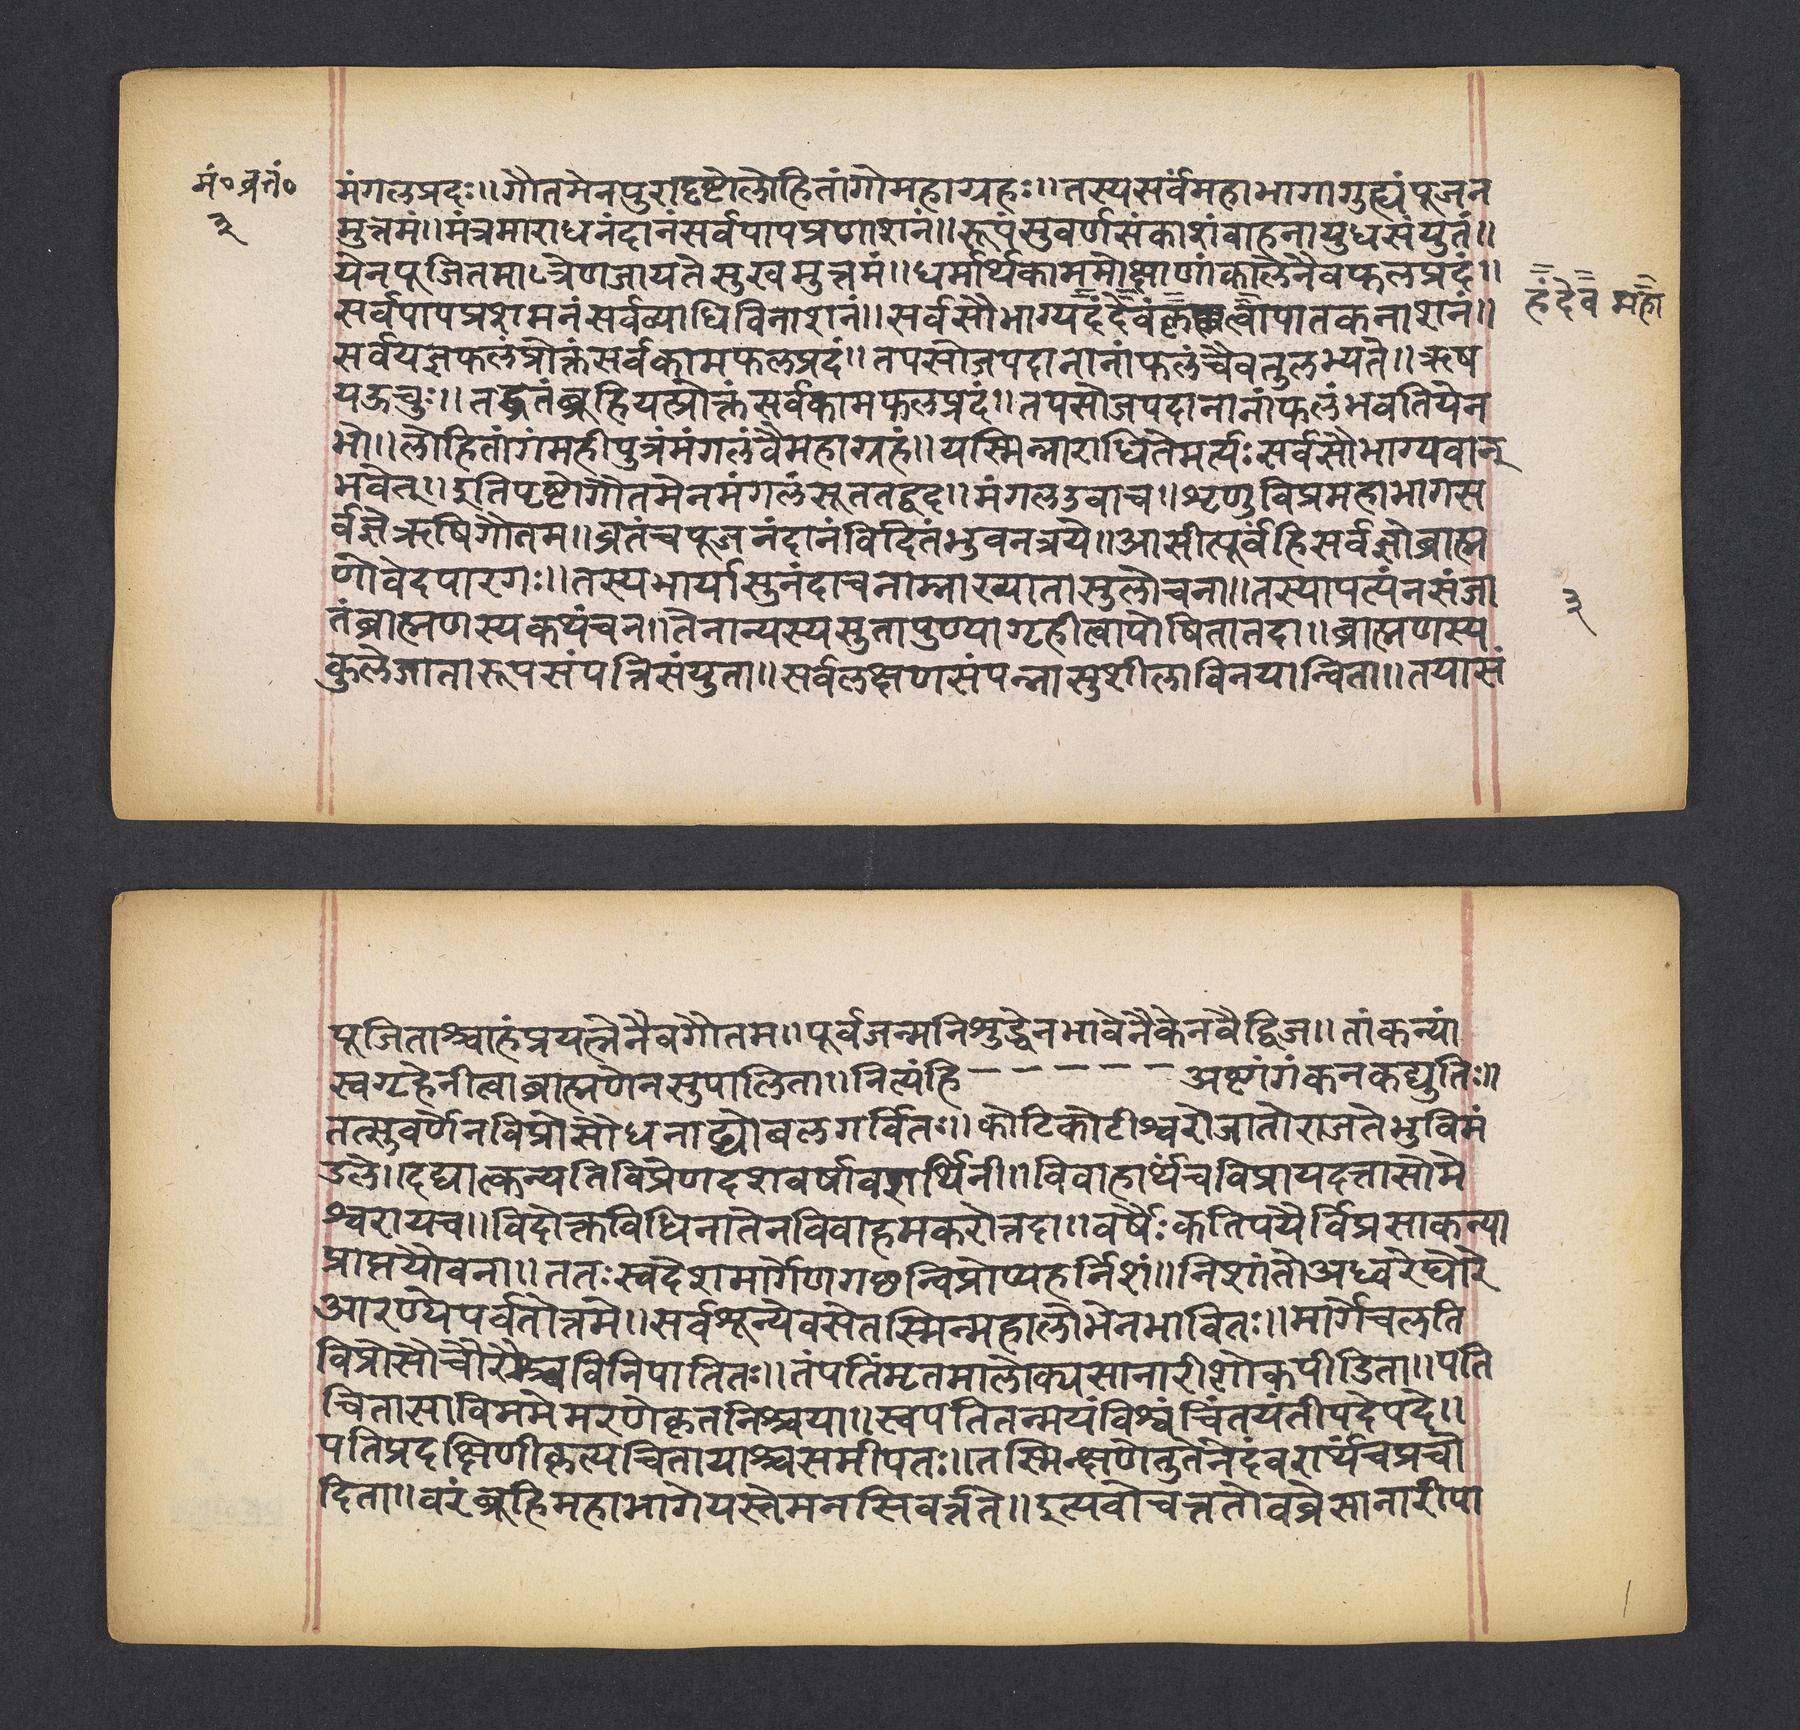 मं॰व्रतं॰
३
मंगलप्रदः॥गौतमेनपुरादृष्टोलोहितांगोमहाग्रहः॥तस्यसर्वंमहाभागागुह्यंपूजन
मुत्तमं॥मंत्रमाराधनंदानंसर्वपापप्रणाशनं॥रूपंसुवर्णसंकाशंवाहनायुधसंयुतं॥
येनपूजितमात्रेणजायतेसुखमुत्तमं॥धर्मार्थकाममोक्षाणांकालेनैवफलप्रदं॥
सर्वपापप्रशमनंसर्वव्याधिविनाशनं॥सर्वसौभाग्यदंदैवं त्वापातकनाशनं॥
हं दैव महा
सर्वयज्ञफलंप्रोक्तंसर्वकामफलप्रदं॥तपसोजपदानानांफलंचैवतुलभ्यते॥ऋष
यऊचुः॥तद्व्रतंब्रूहियत्प्रोक्तंसर्वकामफलप्रदं॥तपसोजपदानानांफलंभवतियेन
भो॥लोहितांगंमहीपुत्रंमंगलंवैमहाग्रहं॥यस्मिन्नाराधितेमर्त्यःसर्वसौभाग्यवान्
भवेत्॥इतिपृष्टोगौतमेनमंगलंसूततद्वद॥मंगलउवाच॥शृणुविप्रमहाभागस
र्वज्ञेऋषिगौतम॥व्रतंचपूजनंदानंविदितंभुवनत्रये॥आसीत्पूर्वंहिसर्वज्ञोब्राह्म
णोवेदपारगः॥तस्यभार्यासुनंदाचनाम्नाख्यातासुलोचना॥तस्यापत्यंनसंजा
३
तंब्राह्मणस्यकथंचन॥तेनान्यस्यसुतापुण्यागृहीत्वापोषितातदा॥ब्राह्मणस्य
कुलेजातारूपसंपत्तिसंयुता॥सर्वलक्षणसंपन्नासुशीलाविनयान्विता॥तयासं
पूजिताश्चाहंप्रयत्नेनैवगौतम॥पूर्वजन्मनिशुद्धेनभावेनैकेनवैद्विज॥तांकन्यां
स्वगृहेनीत्वाब्राह्मणेनसुपालिता॥नित्यंहि– – – – – –अष्टांगंकनकद्युतिः॥
तत्सुवर्णेनविप्रोसौधनाढ्योबलगर्वितः॥कोटिकोटीश्वरोजातोराजतेभुविमं
डले॥दद्यात्कन्यतिविप्रेणदशवर्षावरार्थिनी॥विवाहार्थंचविप्रायदत्तासोमे
श्वरायच॥विदोक्तविधिनातेनविवाहमकरोत्तदा॥वर्षैःकतिपयैर्विप्रसाकन्या
प्राप्तयौवना॥ततःस्वदेशमार्गेणगछन्विप्रोप्यहर्निशं॥निशांतोअध्वरेघोरे
आरण्येपर्वतोत्तमे॥सर्वशून्येवसेतस्मिन्महालोभेनभावितः॥मार्गेचलति
विप्रोसौचौरैश्चविनिपातितः॥तंपतिंमृतमालोक्यसानारीशोकपीडिता॥पति
चितासाविममेमरणेकृतनिश्चया॥स्वपतितन्मयंविश्वंचिंतयंतीपदेपदे॥
पतिप्रदक्षिणीकृत्यचितायाश्चसमीपतः॥तस्मिन्क्षणेतुतेनेदंवरार्थंचप्रचो
दिता॥वरंब्रूहिमहाभागेयस्तेमनसिवर्त्तते॥इत्यवोचत्ततोवव्रेसानारीपा